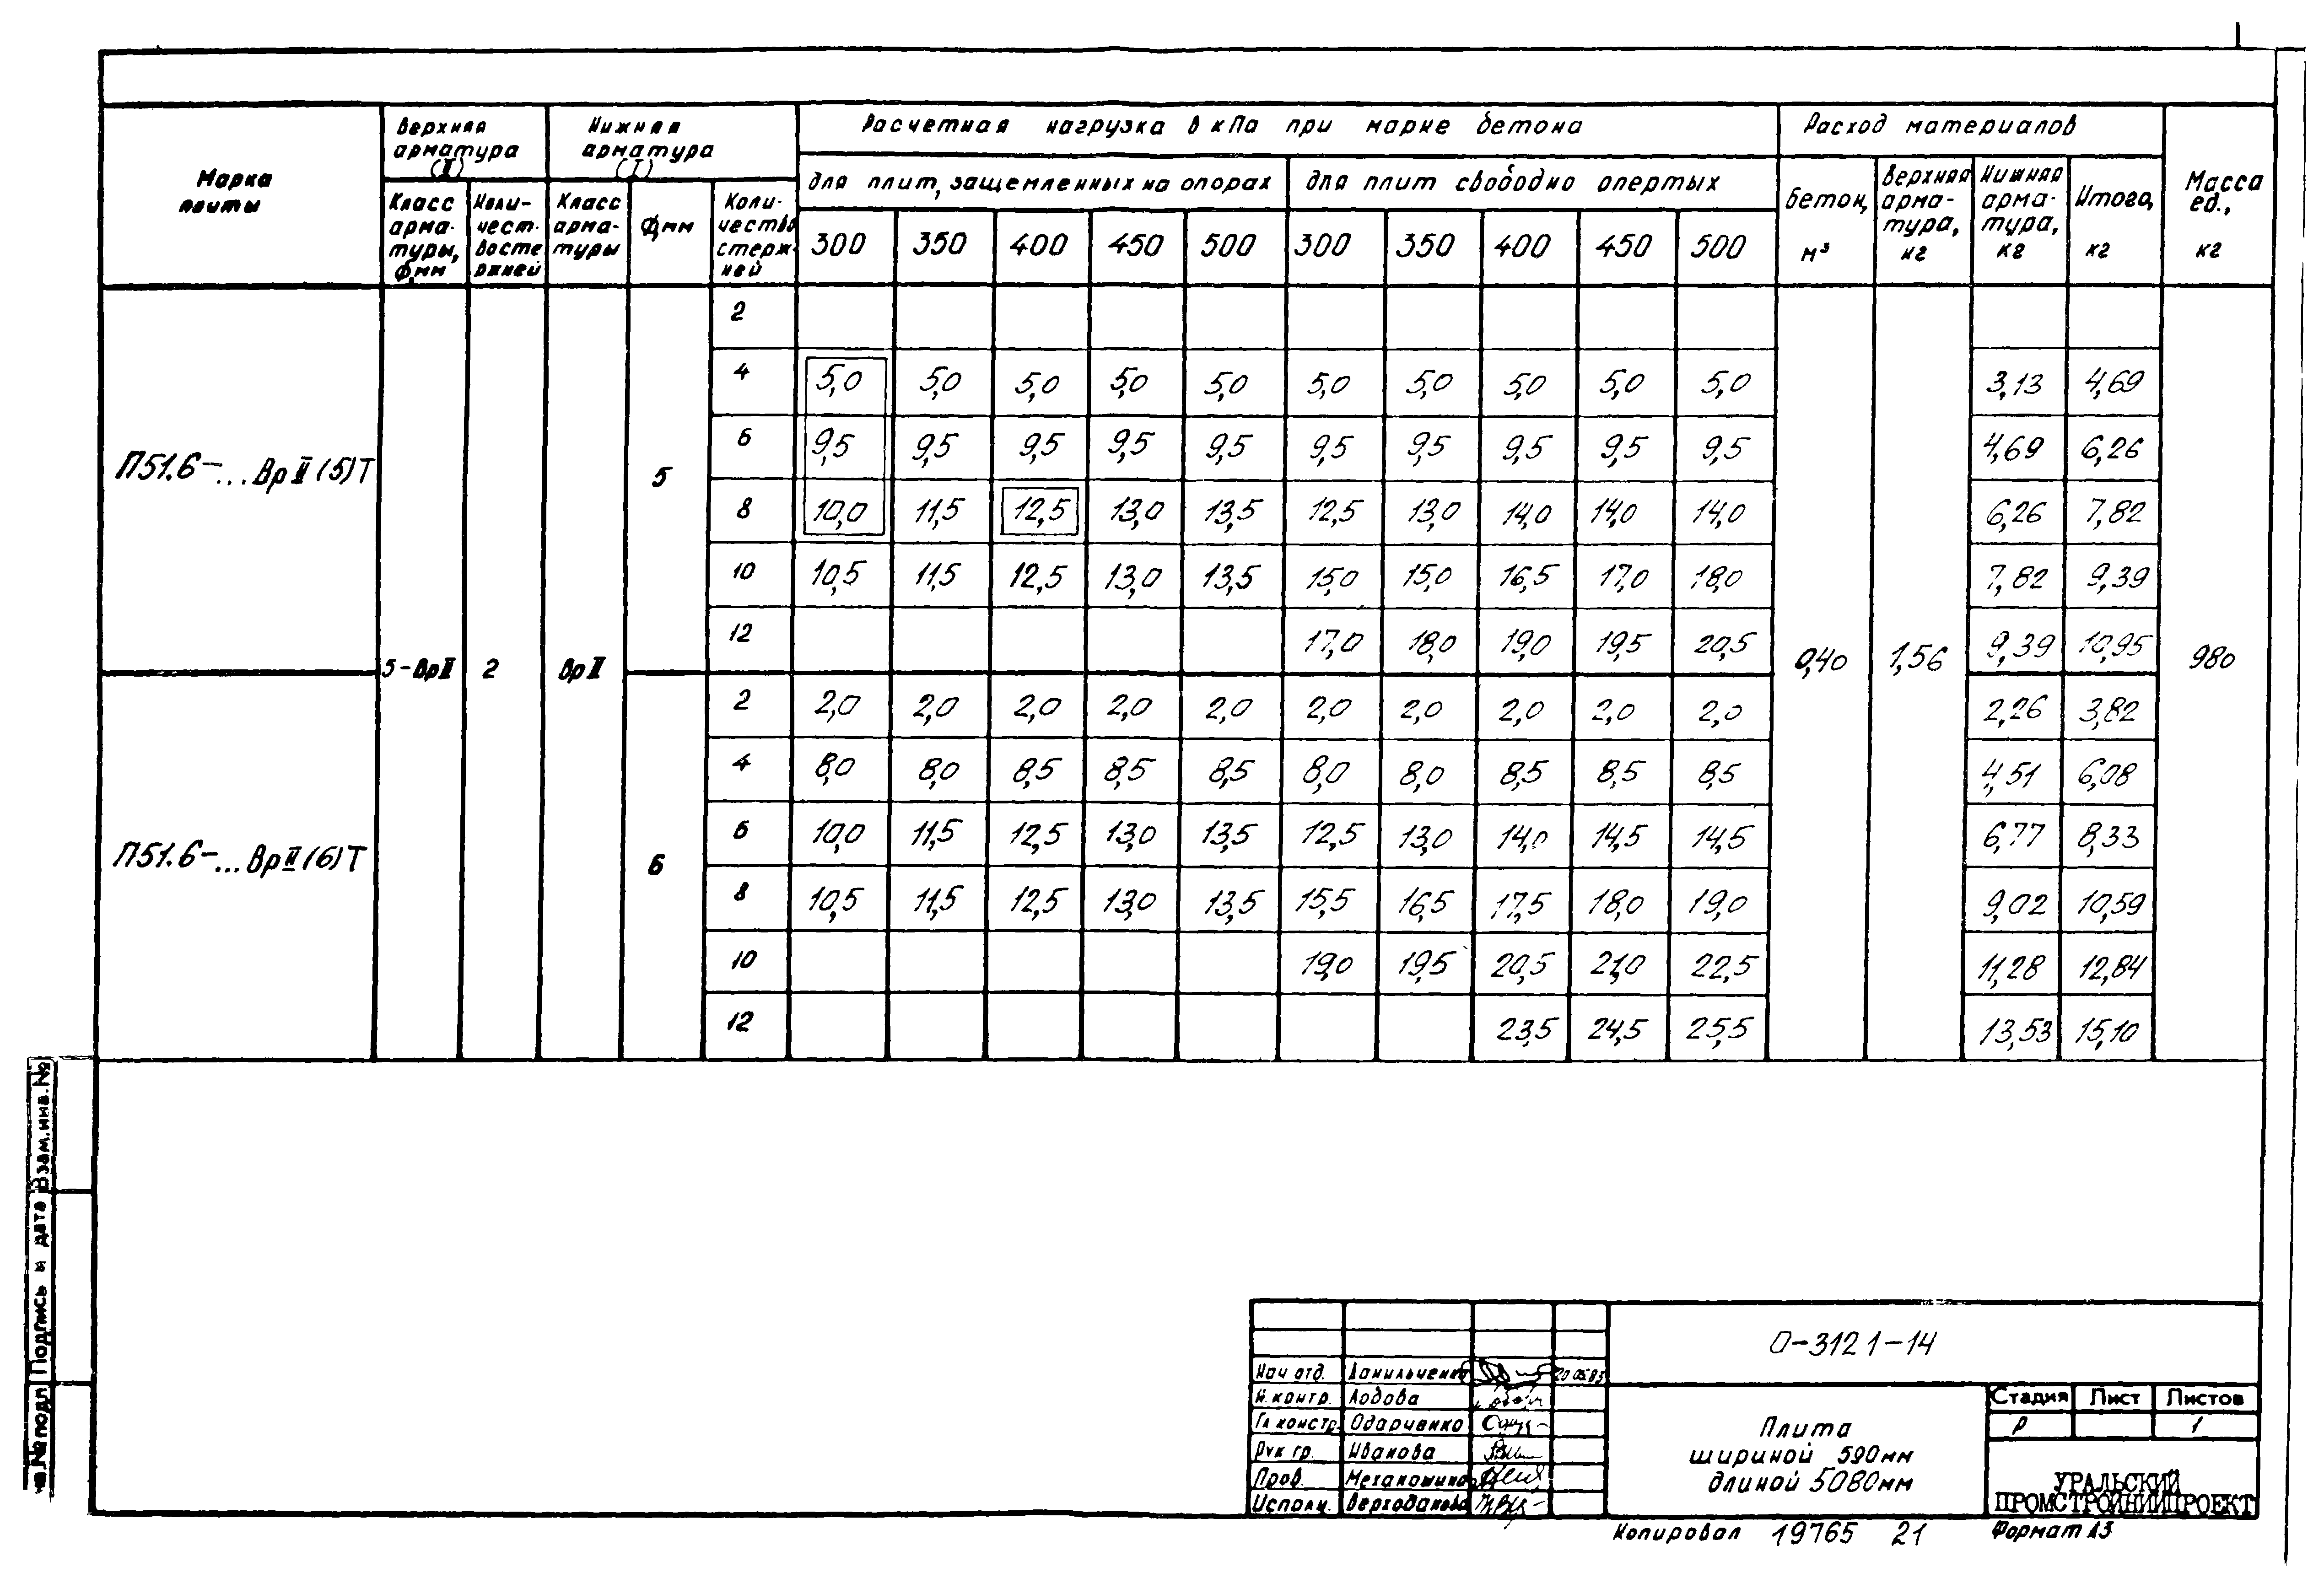 Марка плиты
Верхняя арматура (II)
Нижняя арматура (I)
Расчетная нагрузка в кПа при марке бетона
Расход материалов
Масса ед., кг
Класс арма-туры, ф,мм
Коли-чест-во сте ржней
Класс арма-туры
ф,мм
Коли-чество стерж-ней
для плит, защемленных на опорах
для плит свободно опертых
Бетон, м³
Верхняя арма-тура, кг
Нижняя арма-тура, кг
Итого, кг
300 350 400 450 500 300 350 400 450 500
2
4 5,0 5,0 5,0 5,0 5,0 5,0 5,0 5,0 5,0 5,0 3,13 4,69
6 9,5 9,5 9,5 9,5 9,5 9,5 9,5 9,5 9,5 9,5 4,69 6,26
П51.6-...ВрII(5)Т 5
8 10,0 11,5 12,5 13,0 13,5 12,5 13,0 14,0 14,0 14,0 6,26 7,82
10 10,5 11,5 12,5 13,0 13,5 15,0 15,0 16,5 17,0 18,0 7,82 9,39
12 17,0 18,0 19,0 19,5 20,5 9,39 10,95
5-ВрII 2 ВрII 0,40 1,56 980
2 2,0 2,0 2,0 2,0 2,0 2,0 2,0 2,0 2,0 2,0 2,26 3,82
4 8,0 8,0 8,5 8,5 8,5 8,0 8,0 8,5 8,5 8,5 4,51 6,08
6 10,0 11,5 12,5 13,0 13,5 12,5 13,0 14,0 14,5 14,5 6,77 8,33
П51.6-...ВрII(6)Т 6
8 10,5 11,5 12,5 13,0 13,5 15,5 16,5 17,5 18,0 19,0 9,02 10,59
10 19,0 19,5 20,5 21,0 22,5 11,28 12,84
12 23,5 24,5 25,5 13,53 15,10
Взам.инв.№
Подпись и дата
№ подл
О-312 1-14
Нач отд. Данильченко 20.05.83
Н. контр. Лодова
Гл констр. Одарченко
Рук гр. Иванова
Пров.
Исполн.
Плита
шириной 590мм
длиной 5080мм
Стадия Лист Листов
Р 1
УРАЛЬСКИЙ
ПРОМСТРОЙНИИПРОЕКТ
Копировал 19765 21 Формат А3